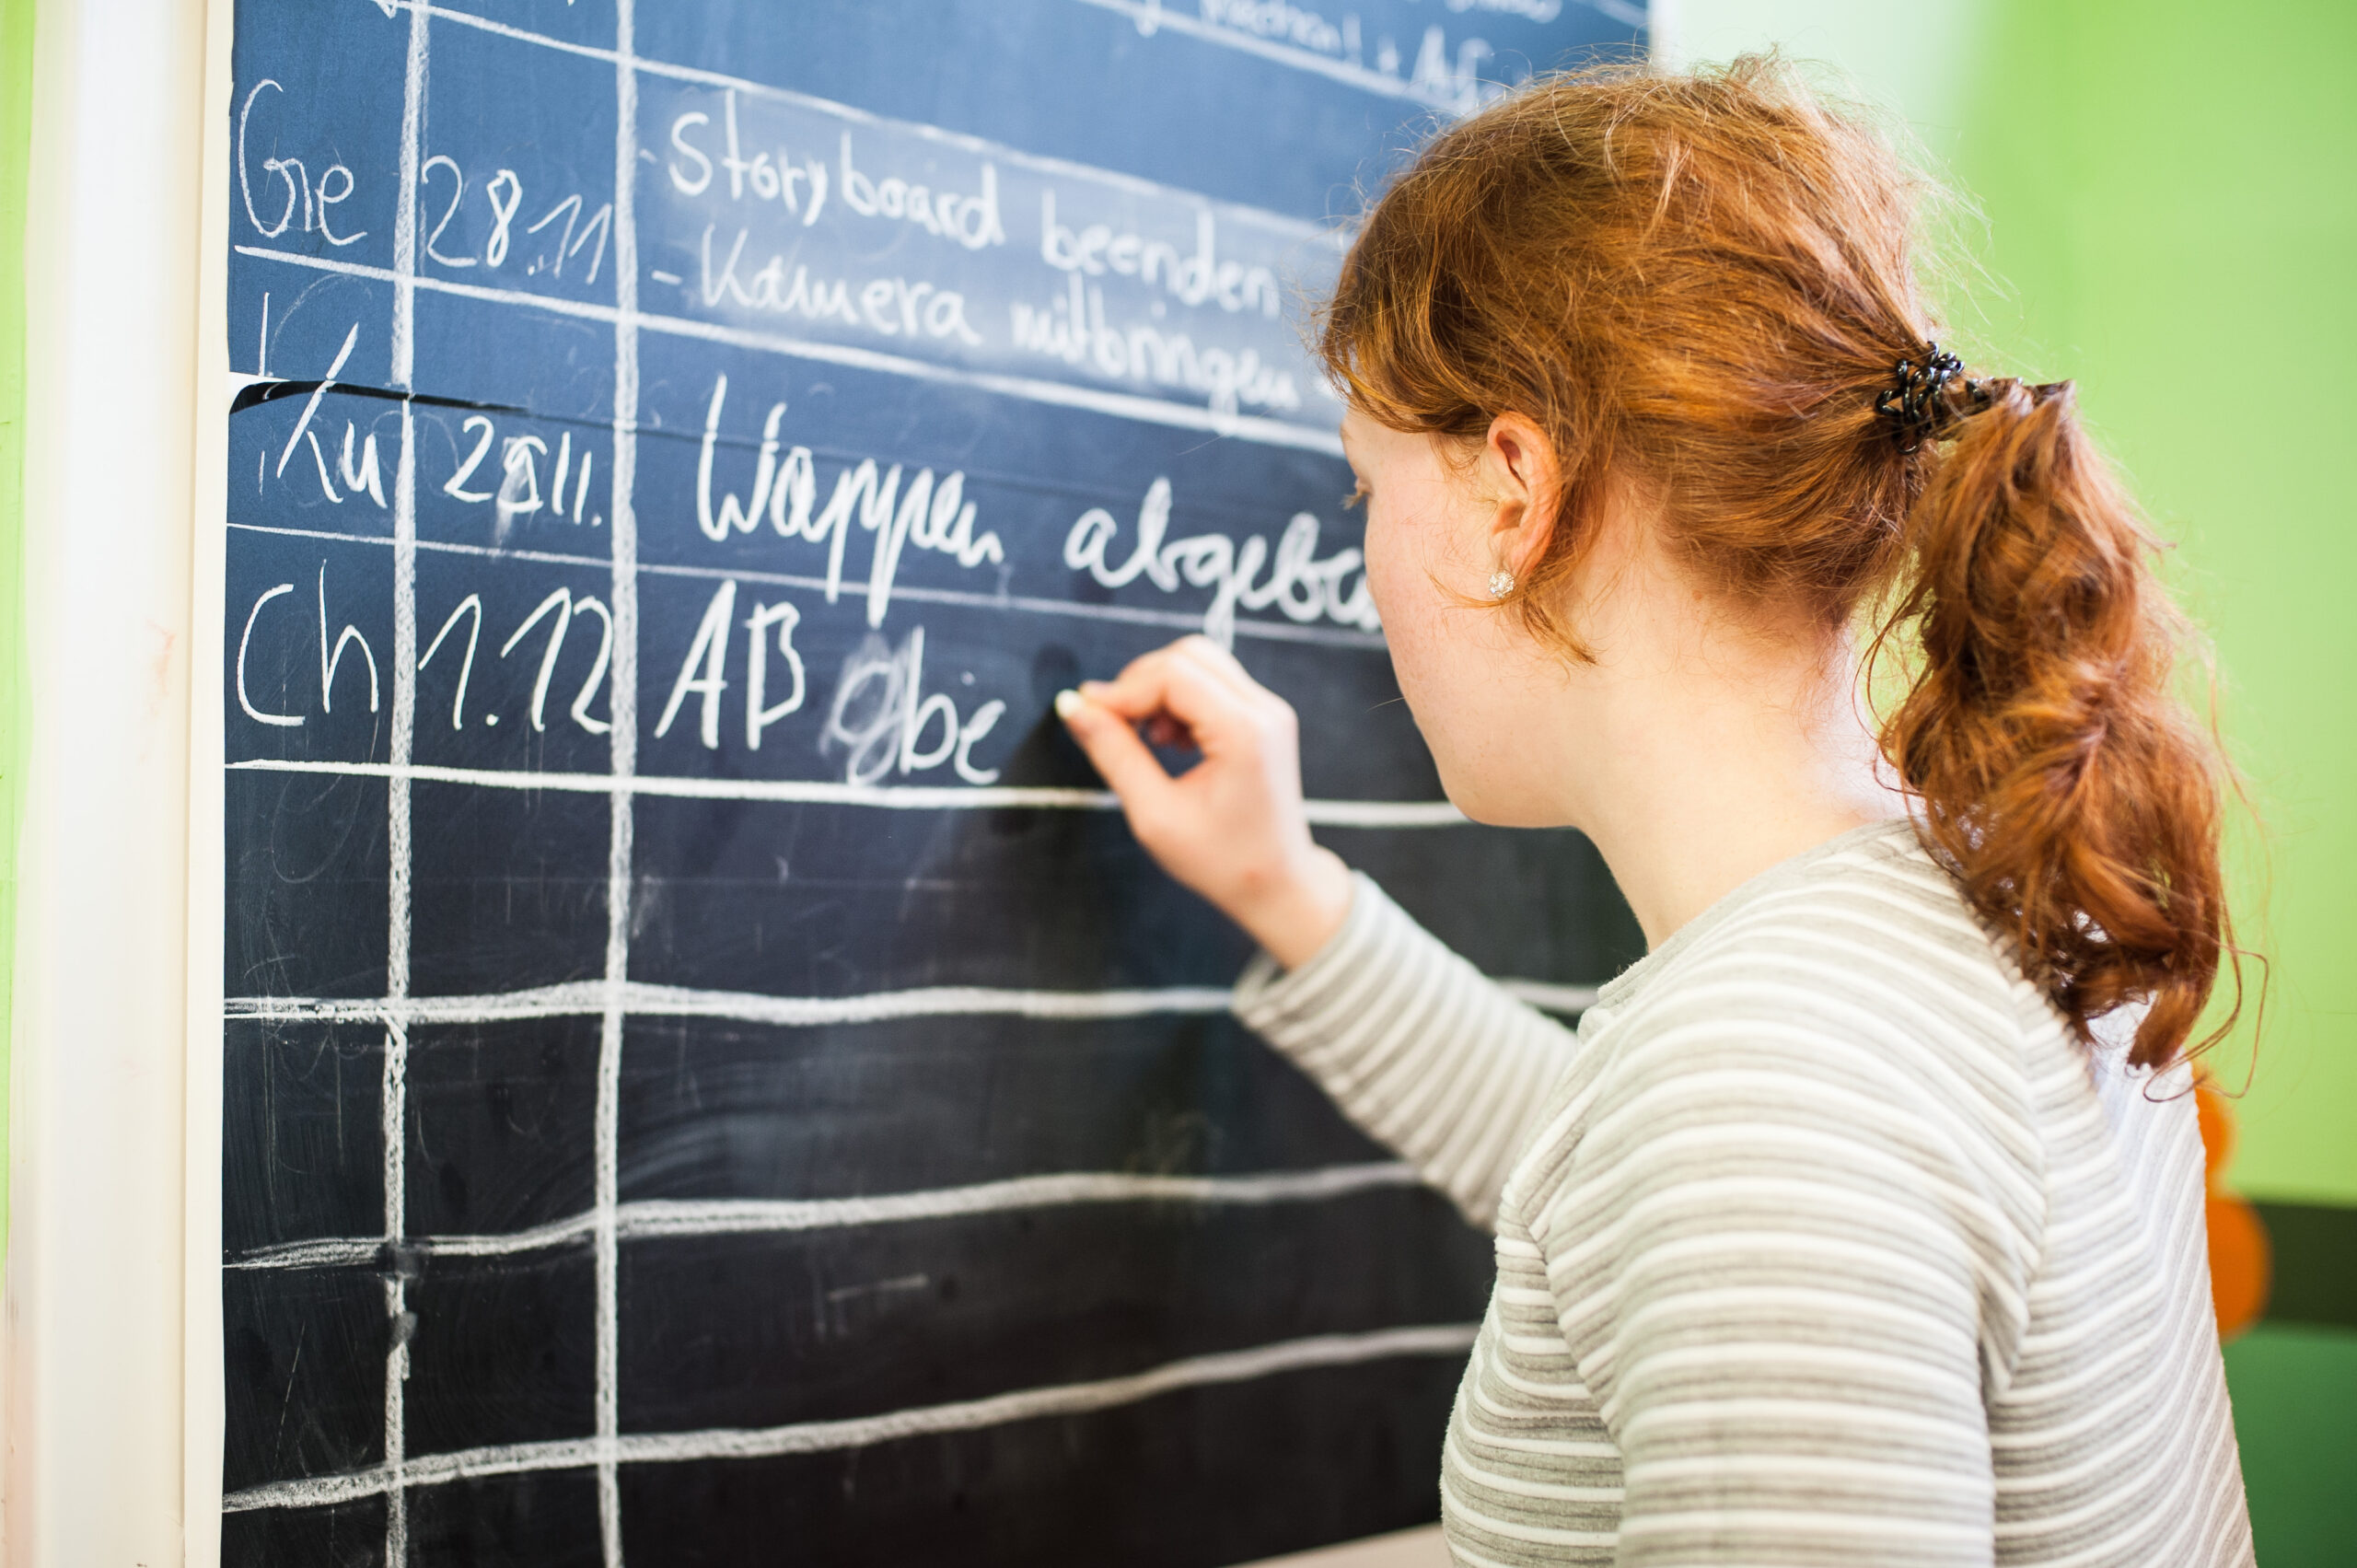 machen! + AG
Gre 28.11 - Storyboard beenden
- Kamera mitbringen
Ku 2511. Wappen abgeben
Ch 1.12 AB